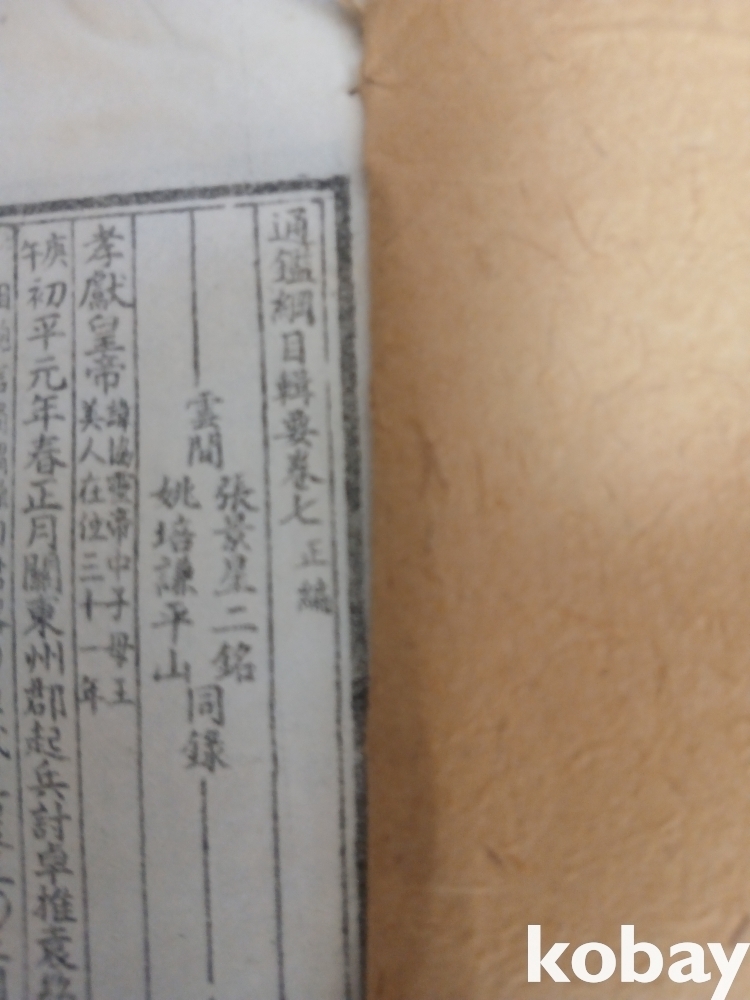 通鑑綱目輯要卷七 正編
雲間 張景星二銘 姚培謙平山 同錄
孝獻皇帝 諱協靈帝中子母王美人在位三十一年
庚午 初平元年春正月關東州郡起兵討卓推袁
kobay